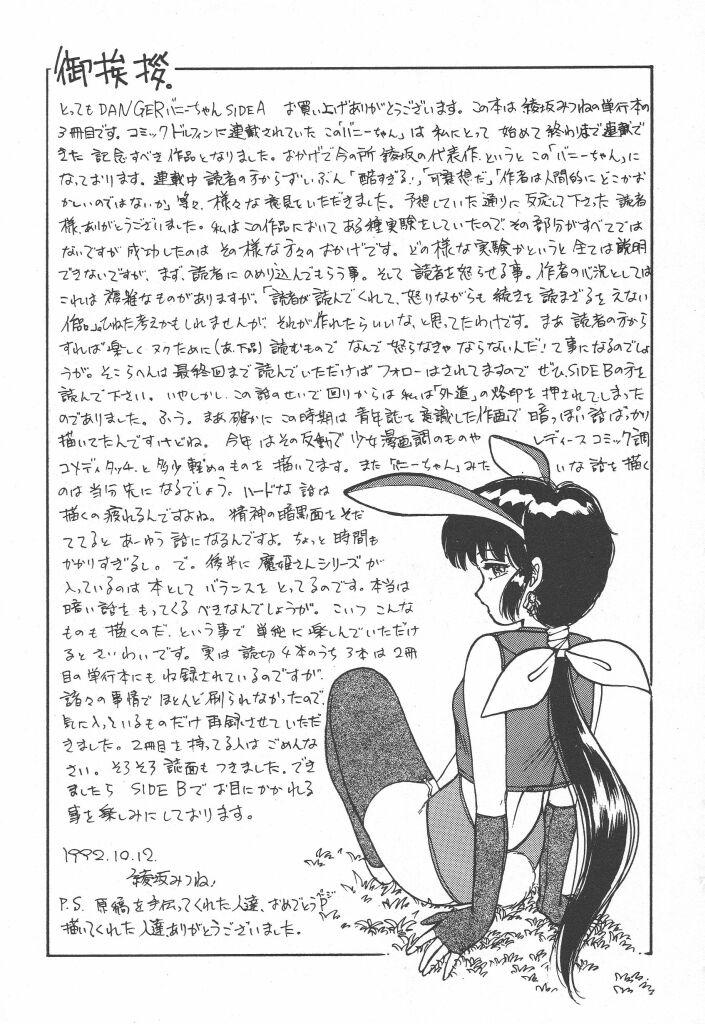 御挨拶。
とってもDANGERバニーちゃんSIDE A お買い上げありがとうございます。この本は綾坂みつねの単行本の
3冊目です。コミックドルフィンに連載されていたこの「バニーちゃん」は私にとって始めて終わりまで連載で
きた記念すべき作品となりました。おかげで今の所綾坂の代表作、というとこの「バニーちゃん」に
なっております。連載中読者の方からずいぶん「酷すぎる!」「可哀想だ」「作者は人間的にどこかお
かしいのではないか」等々、様々な意見をいただきました。予想していた通りに反応して下さった読者
様、ありがとうございました。私はこの作品においてある種実験をしていたので、その部分がすべてでは
ないですが成功したのはその様な方々のおかげです。どの様な実験かというと全ては説明
できないですが、まず、読者にのめり込んでもらう事。そして読者を怒らせる事。作者の心況としては
これは複雑なものがありますが、「読者が読んでくれて、怒りながらも続きを読まざるをえない
作品」。ひねた考えかもしれませんが、それが作れたらいいな、と思ってたわけです。まあ読者の方から
すれば楽しくヌクために(あ、下品)読むものでなんで怒らなきゃならないんだ!て事になるのでしょ
うが。そこらへんは最終回まで読んでいただけばフォローはされてますのでぜひSIDE Bの方を
読んで下さい。いやしかし、この話のせいで回りからは私は「外道」の烙印を押されてしまった
のでありました。ふう。まあ確かにこの時期は青年誌を意識した作画で暗っぽい話ばっかり
描いてたんですけどね。今年はその反動で少女漫画調のものやレディースコミック調
コメディタッチ、と多少軽めのものを描いてます。また「バニーちゃん」みたいな話を描く
のは当分先になるでしょう。ハードな話は
描くの疲れるんですよね。精神の暗黒面をそだ
ててるとあーゆう話になるんですよ。ちょっと時間も
かかりすぎるし。で。後半に魔姫さんシリーズが
入っているのは本としてバランスをとってるのです。本当は
暗い話をもってくるべきなんでしょうが。こいつこんな
ものも描くのだ、という事で単純に楽しんでいただけ
るとさいわいです。実は読切4本のうち3本は2冊
目の単行本にも収録されているのですが
諸々の事情でほとんど刷られなかったので、
気に入っているものだけ再録させていただ
きました。2冊目を持ってる人はごめんな
さい。そろそろ誌面もつきました。でき
ましたらSIDE Bでお目にかかれる
事を楽しみにしております。
1992.10.12.
綾坂みつね
P.S. 原稿を手伝ってくれた人達、おめでとうページ
描いてくれた人達ありがとうございました。